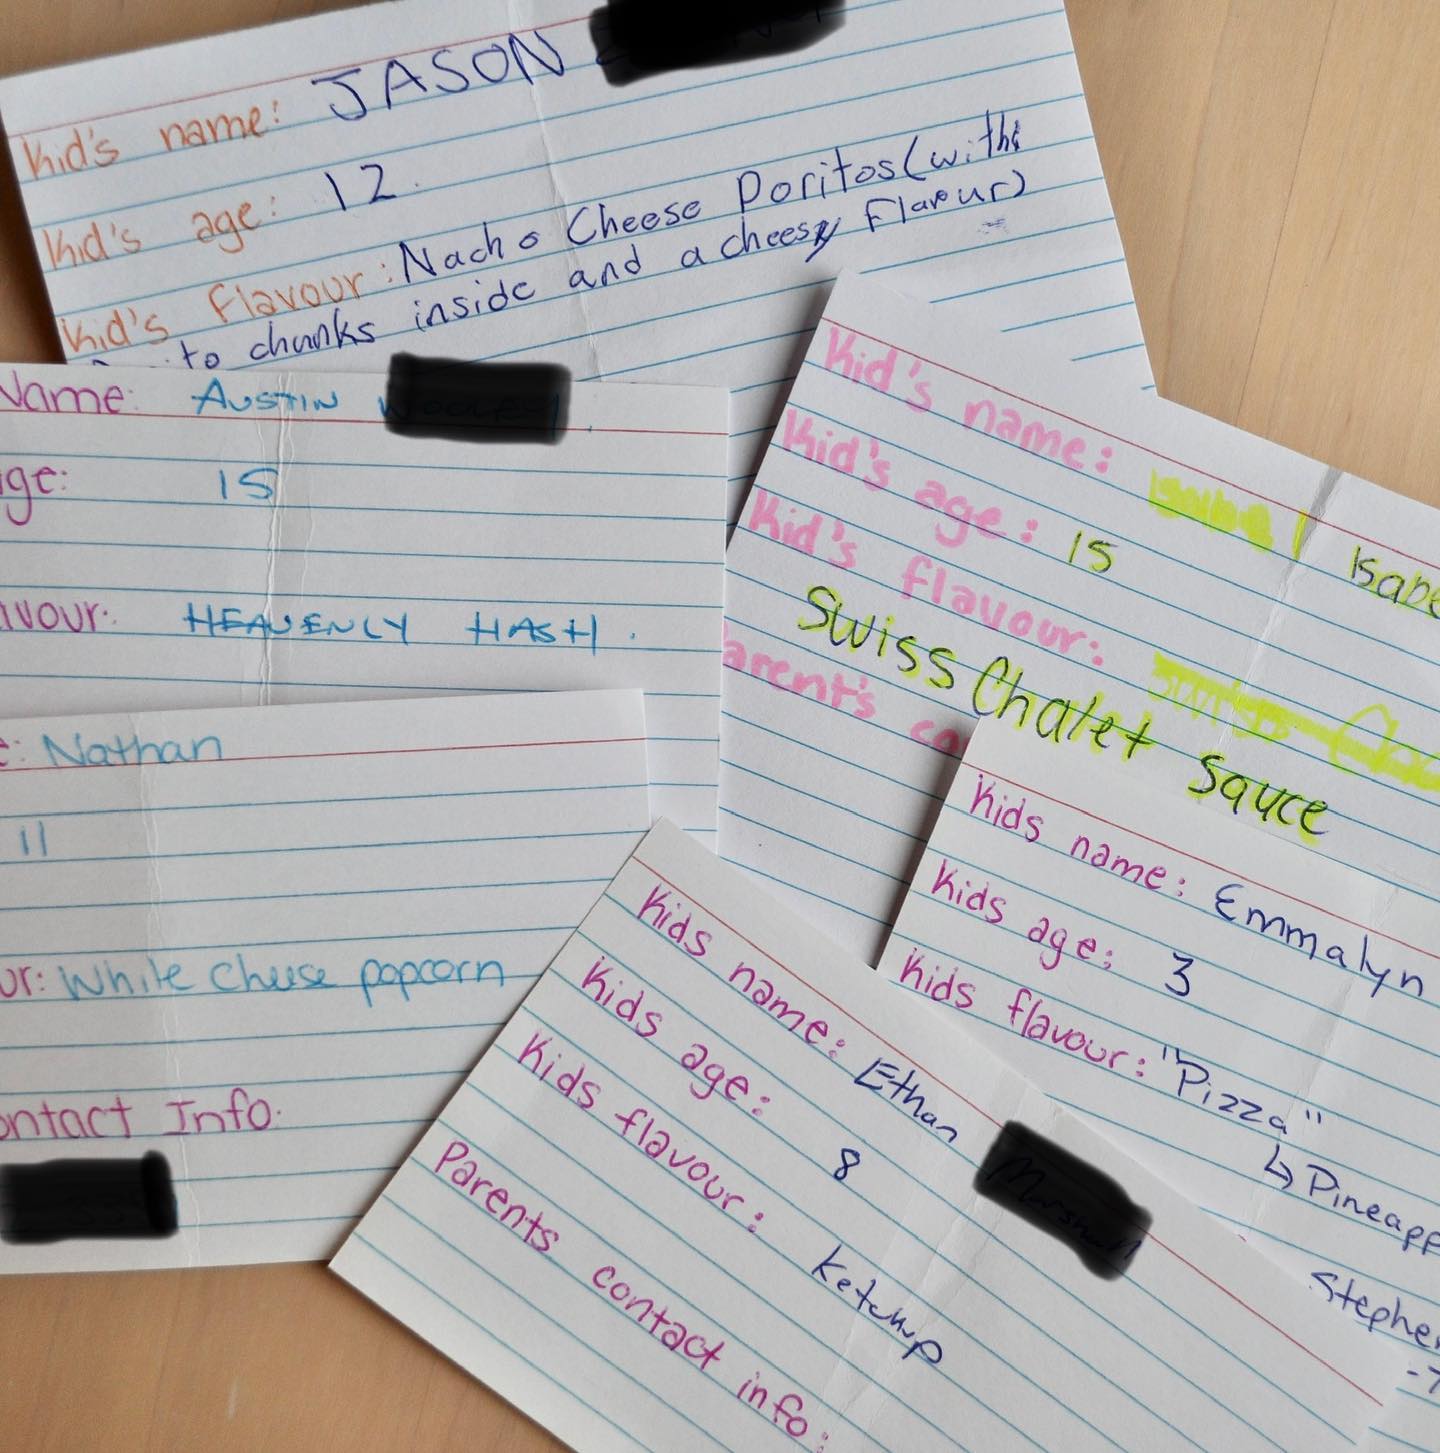 Kid's name: JASON
Kid's age: 12.
Kid's Flavour: Nacho Cheese Doritos (with
to chunks inside and a cheesy Flavour)
Name: AUSTIN
age: 15
HEAVENLY HASH.
Kid's name: Isabe
Kid's age: 15
Kid's flavour:
Swiss Chalet Sauce
arent's co
Nathan
11
White Cheese popcorn
ontact Info.
Kids name: Emmalyn
Kids age: 3
Kids flavour: "Pizza"
↳ Pineapp
Stephe
Kids name: Ethan
Kids age: 8
Kids flavour: Ketchup
Parents contact info: